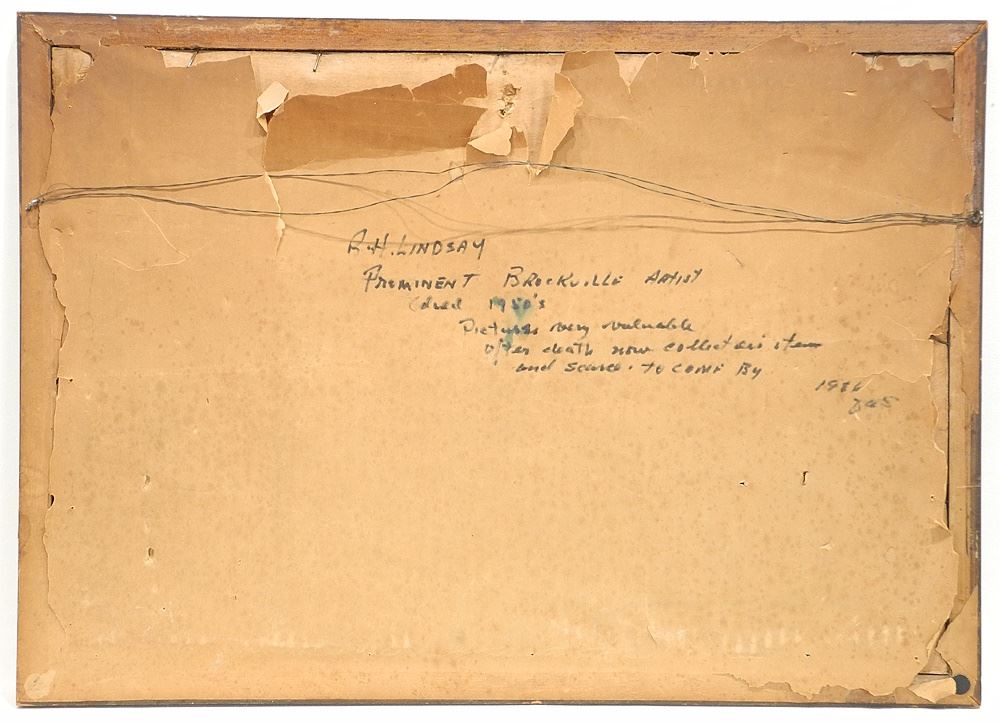 R.H. LINDSAY
PROMINENT BROCKVILLE ARTIST
(died 1950's
Pictures very valuable
after death now collectors item
and scarce. TO COME By